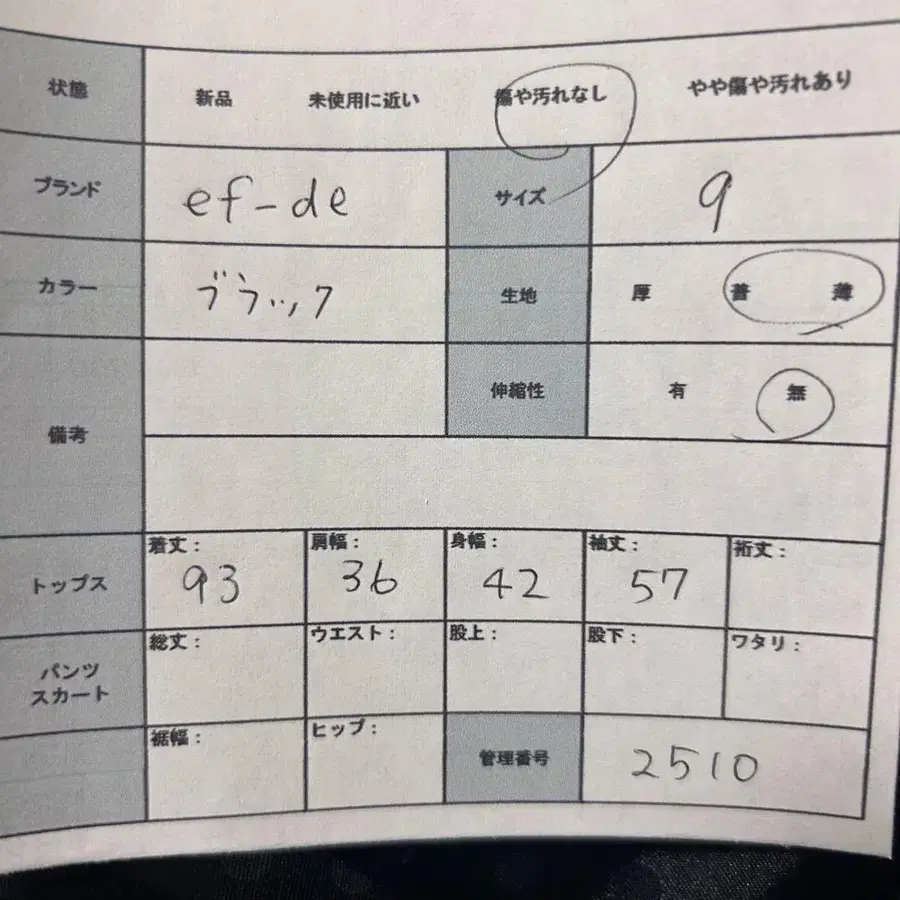 状態 新品 未使用に近い 傷や汚れなし やや傷や汚れあり
ブランド ef-de サイズ 9
カラー ブラック 生地 厚 普 薄
伸縮性 有 無
備考
トップス 着丈: 93 肩幅: 36 身幅: 42 袖丈: 57 裄丈:
パンツ スカート 総丈: ウエスト: 股上: 股下: ワタリ:
裾幅: ヒップ: 管理番号 2510